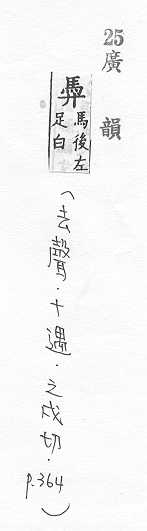 25
廣韻
馬後左
足白
(去聲．十遇．之戍切．p.364)